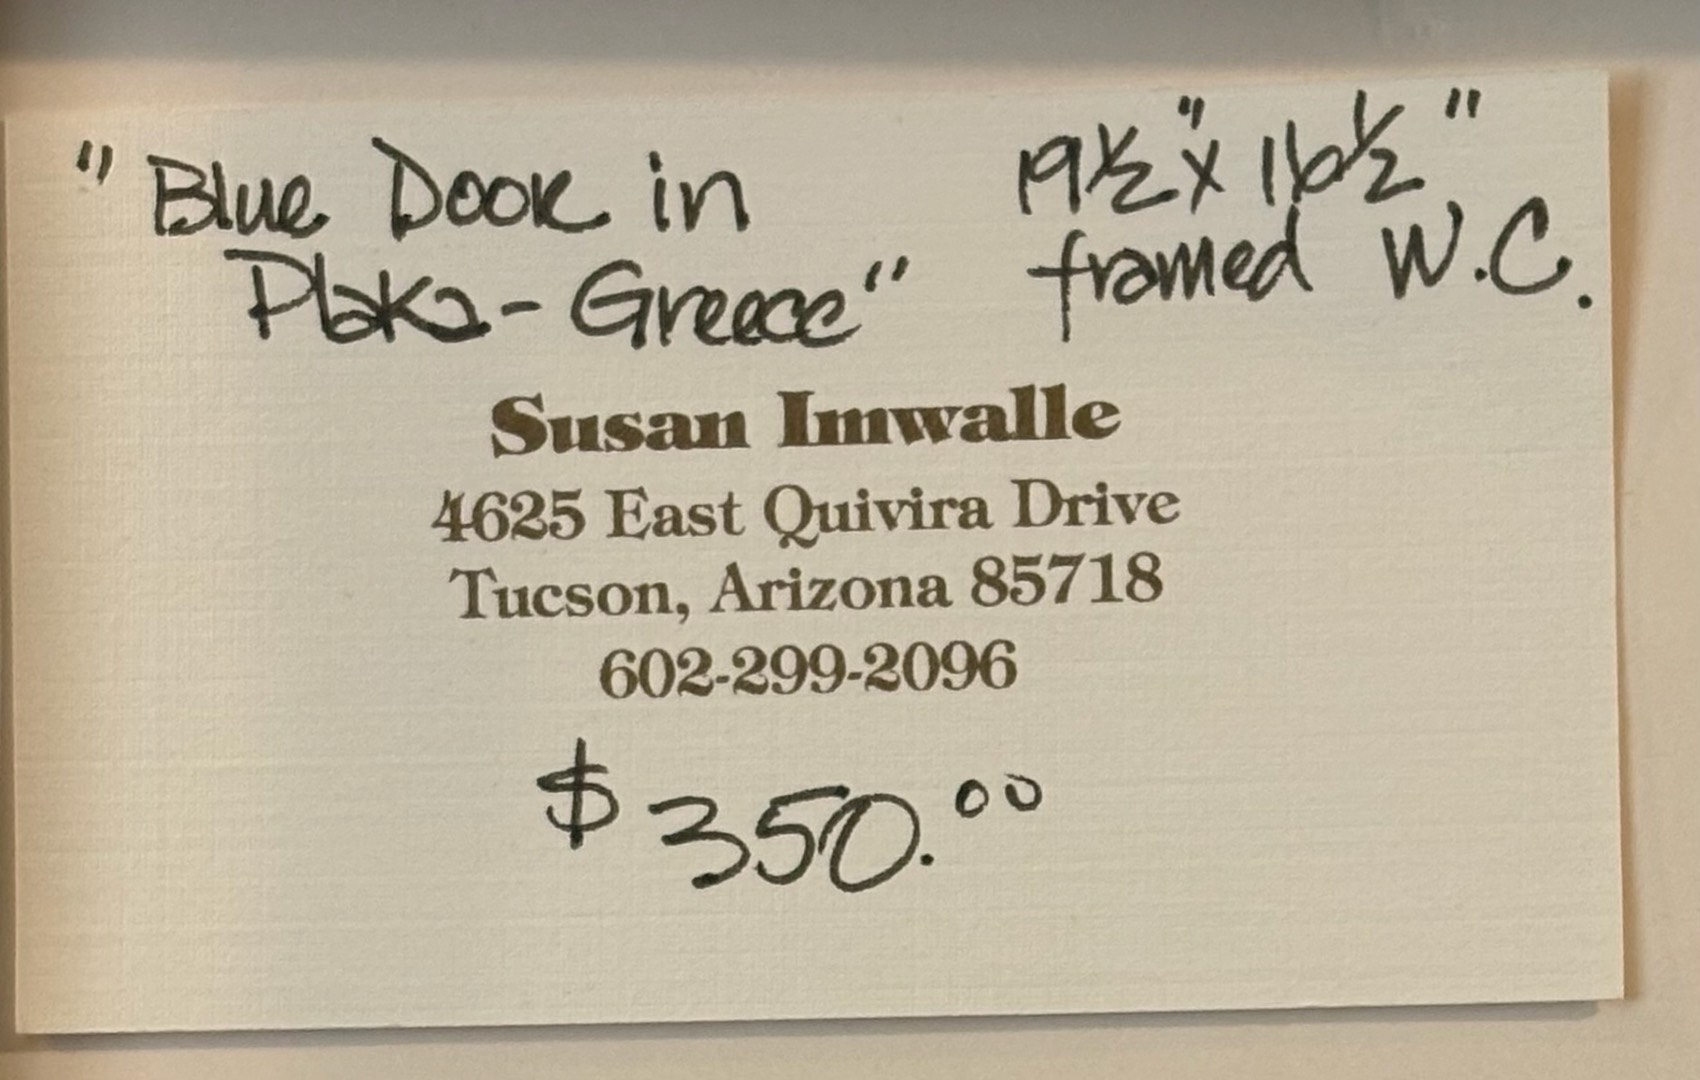 "Blue Door in
Plaka - Greece"
19½" x 16½"
framed W.C.
Susan Imwalle
4625 East Quivira Drive
Tucson, Arizona 85718
602-299-2096
$350.00